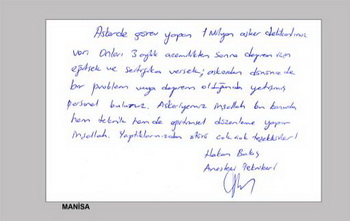 Askerde görev yapan 1 Milyon asker delikanlımız
var. Onları 3 aylık acemilikten sonra deprem için
eğitsek ve sertifika versek; askerden dönünce de
bir problem veya deprem olduğunda yetişmiş
personel buluruz. Askerliğimiz inşallah bu konuda
hem teknik hem de eğitimsel düzenleme yapar
inşallah. Yaptıklarınızdan ötürü çok çok teşekkürler!
Hakan
Anestezi Teknikeri
MANİSA